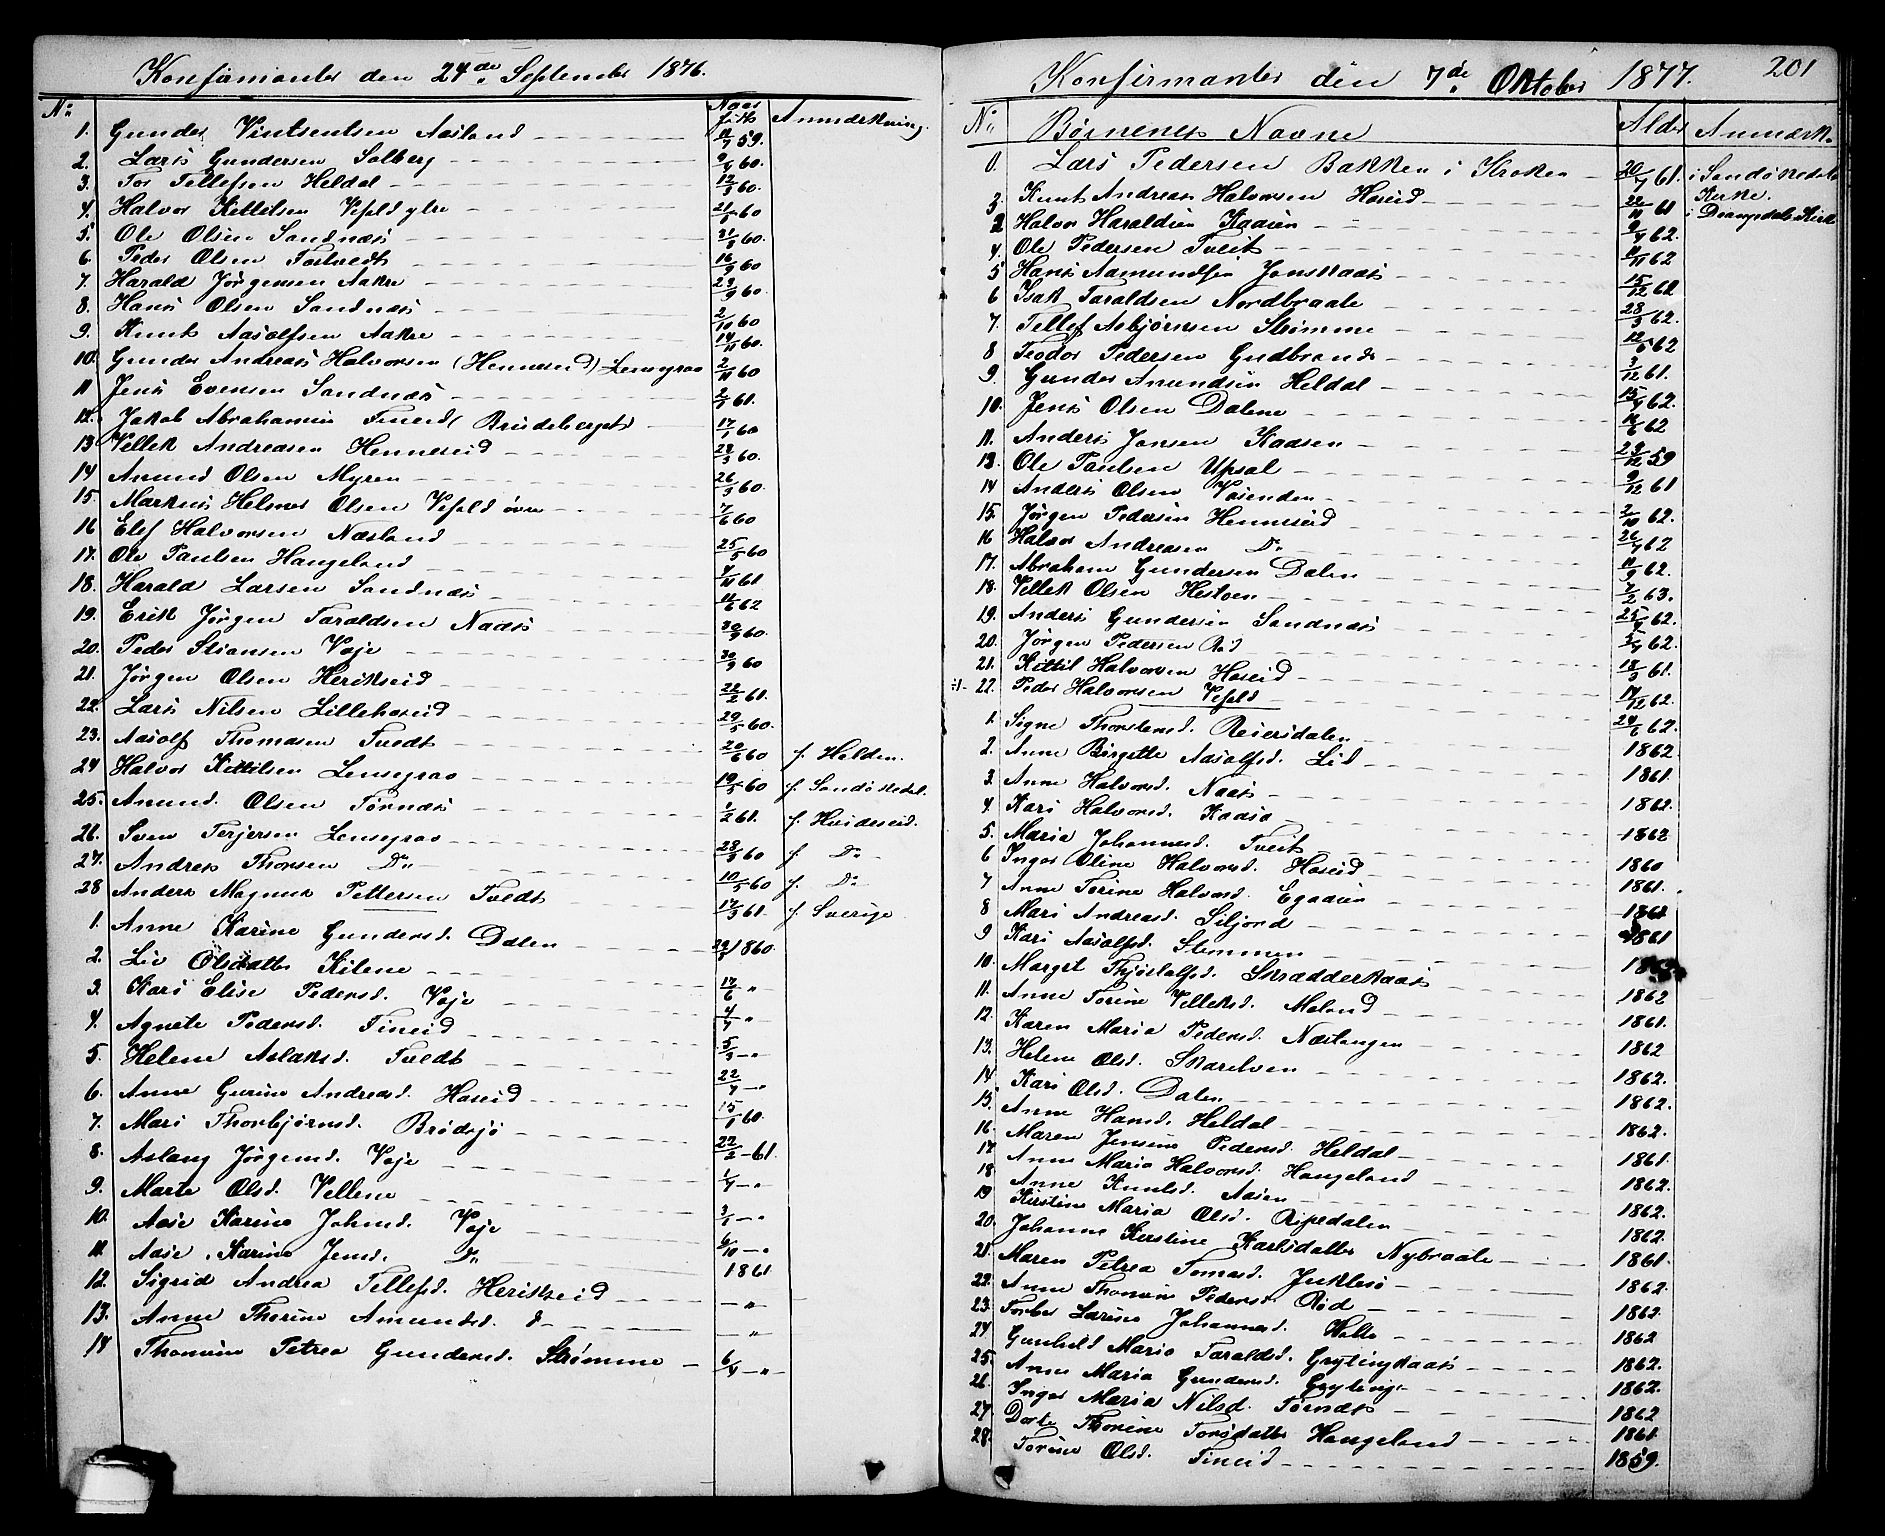 Konfirmanter den 24de September 1876.
No Naar født Anmærkning
1. Gunder Vintsentsen Aasland 11/7 59.
2. Lars Gundersen Solberg 9/4 60.
3. Tor Tellefsen Heldal 12/8 60.
4. Halvor Kittilsen Vefald ytre 21/8 60
5. Ole Olsen Sandnæs 31/8 60.
6. Peder Olsen Tostvedt 16/9 60
7. Harald Jørgensen Aakre 23/9 60.
8. Hans Olsen Sandnæs 2/10 60
9. Knut Aasolfsen Aakre 14/11 60.
10. Gunder Andreas Halvorsen (Henneseid) Lensegrav 2/11 60
11 Jens Evensen Sandnæs 2/1 61.
12. Jakob Abrahamsen Tineid (Brudeberget) 17/1 60
13 Vellek Andreasen Henneseid 28/3 60.
14 Amund Olsen Myren 26/3 60.
15. Markus Helmer Olsen Vefald øvre 7/6 60
16 Elef Halvorsen Næsland 25/5 60
17. Ole Paulsen Haugeland 4/11 61
18. Harald Larsen Sandnæs 11/6 62
19. Erik Jørgen Taraldsen Naas 30/9 60.
20. Peder Stiansen Voje 30/9 60
21. Jørgen Olsen Herikseid 22/2 61.
22. Lars Nilsen Lillehoseid 29/5 60.
23. Aasolf Thomasen Tvedt 20/6 60 f. Holden.
24 Halvor Kittilsen Lensegrav 19/5 60 f. Sandøkedal.
25. Anund Olsen Tørnæs 1/2 61. f. Hvideseid.
26. Sven Terjesen Lensegrav 28/3 60 f. Do
27. Andreas Thorsen Do 10/5 60 f. Do
28 Anders Magnus Pettersen Tvedt 17/3 61. f. Sverige
1. Anne Karine Gundersd. Dalen 29/3 1860.
2. Liv Olsdatter Kilene
3. Kari Elise Pedersd. Voje 17/6 "
4. Agnete Pedersd. Tineid 4/7 "
5. Helene Aslaksd. Tvedt 5/3 - "
6. Anne Gurine Andreasd. Hoseid 22/4 - "
7. Mari Thorbjørnsd. Brødsjø 15/1 60.
8. Aslaug Jørgensd. Voje 22/2 - 61.
9. Marte Olsd. Vellene 1/4 - "
10. Aase Karine Johnsd. Voje 3/1 - "
11. Aase Karine Jensd. Do 6/10 - "
12. Sigrid Andrea Tellefsd. Herikseid 1861
13. Anne Thorine Amundsd. d - " -
14 Thomine Petrea Gundersd. Strømme 6/4 - " -
Konfirmanter den 7de Oktober 1877. 201
No Børnenes Navne Alder Anmærk.
0. Lars Pedersen Bakken i Kroken 20/7 61. i Sandøkedals Kirke.
3. Knut Andreas Halvorsen Hoseid 22/11 61 i Drangedals Kirke
2 Halvor Haraldsen Kaasen 9/4 62.
4. Ole Pedersen Tveit 4/11 62
5 Hans Aamundsen Jonskaas 15/12 62
6 Isak Taraldsen Nordbraate 28/3 62.
7. Tellef Asbjørnsen Strømme 12/6 62
8 Teodor Pedersen Gudbrands 3/12 61.
9. Gunder Amundsen Heldal 15/4 62.
10. Jens Olsen Dalene 14/6 62
11. Anders Jansen Kaasen 29/12 59
13. Ole Paulsen Upsal 9/12 61
14 Anders Olsen Vøienden 2/10 62.
15. Jørgen Pedersen Henneseid 26/7 62
16 Halvor Andreasen Do 11/9 62.
17. Abraham Gundersen Dalen 7/2 63.
18. Vellek Olsen Hestøen 25/4 62.
19. Anders Gundersen Sandnæs 5/4 62.
20. Jørgen Pedersen Rød 18/3 61.
21. Kittil Halvorsen Hoseid 17/12 62.
22. Peder Halvorsen Vefald 24/6 62.
1. Signe Thorstensd. Reiersdalen 1862.
2. Anne Birgitte Aasolfsd. Lid 1861.
3. Anne Halvorsd. Naas 1862.
4. Kari Halvorsd. Kaasa 1862
5. Maria Johannesd. Tveit 1860
6 Inger Oline Halvorsd. Hoseid 1861.
7 Anne Torine Halvorsd. Egaasen 1861
8 Mari Andreasd. Siljord 1861
9 Kari Aasolfsd. Stemmen
10. Margit Thjostolfsd. Skradderkaas 1862
11. Anne Torine Velleksd. Moland 1861.
12. Karen Maria Pedersd. Næstangen 1862
13. Helene Olsd. Skarelven 1862.
14 Kari Olsd. Dalen 1862.
15. Anne Hansd. Heldal 1862.
16 Maren Jensine Pedersd. Heldal 1861.
17 Anne Maria Halvorsd. Haugeland 1862.
18 Anne Knutsd. Aasen 1862.
19 Kirstine Maria Olsd. Ripedalen 1862.
20. Johanne Kirstine Karlsdatter Nybraate 1861.
21. Maren Petrea Tomasd. Juklesø 1862.
22. Anne Thomine Pedersd. Rød 1862.
23. Torbor Larine Johannesd. Holte 1862
24 Gunhild Maria Taraldsd. Grytingkaas 1862.
25. Anne Maria Gundersd. Gryting 1862.
26 Inger Maria Nilsd. Tørnæs 1862
27 Dorte Thorine Torsdatter Haugeland 1861
28. Torine Olsd. Tineid 1859.